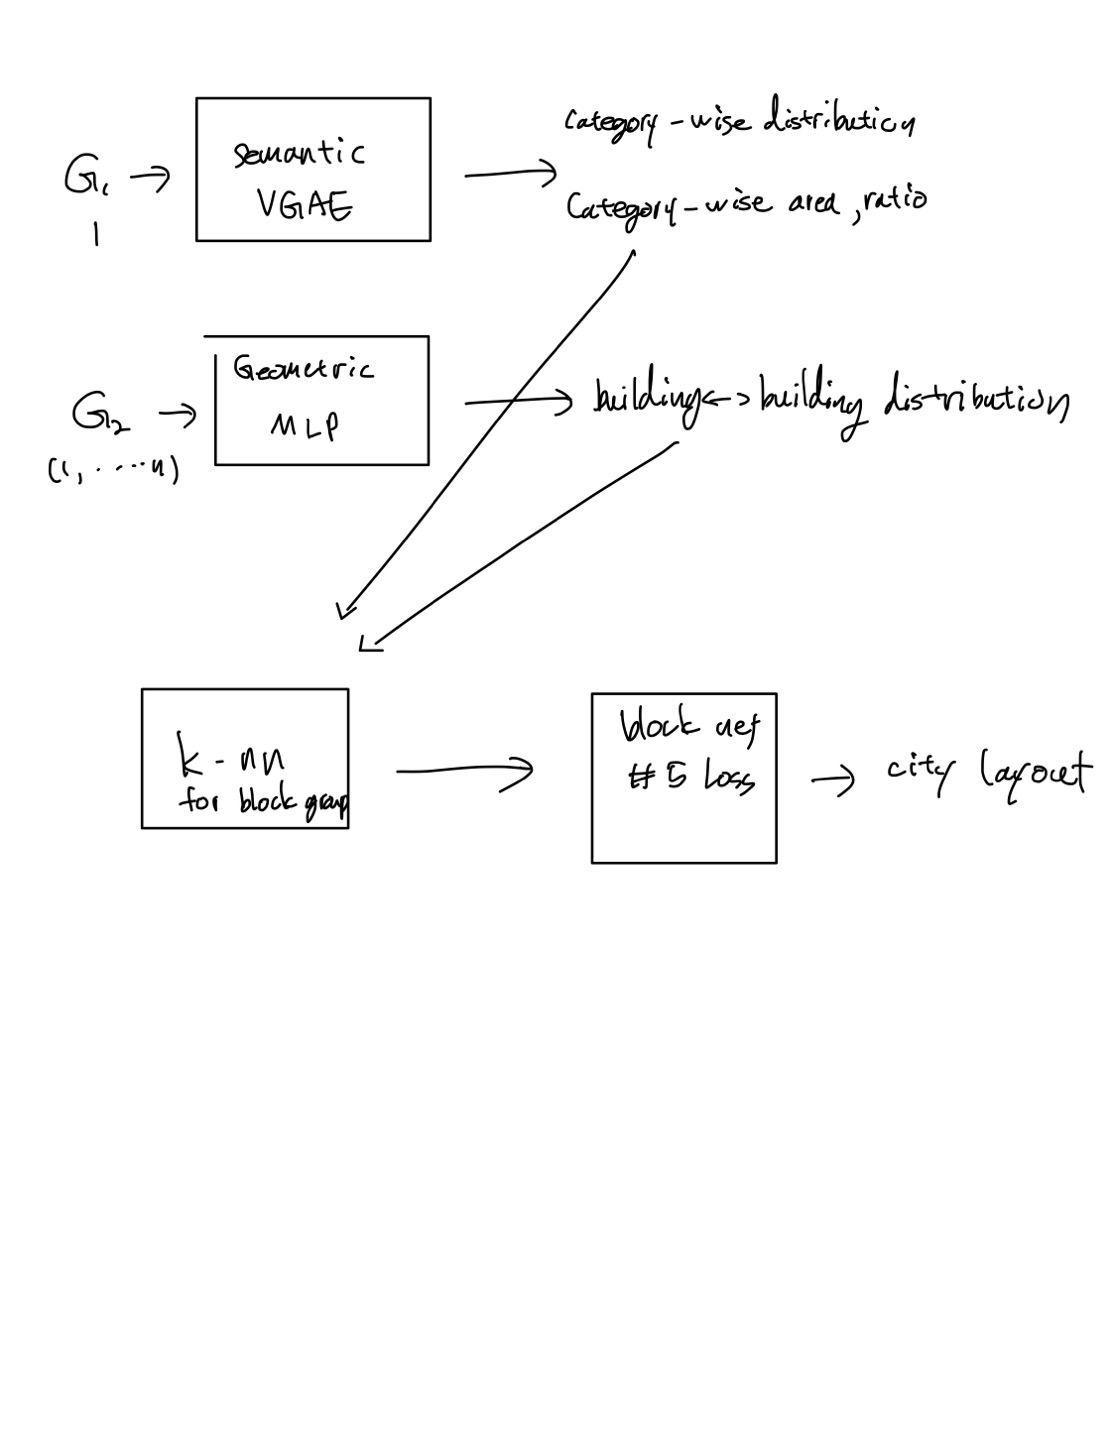 G1
1
semantic
VGAE
Category-wise distribution
Category-wise area, ratio
G2
(1, ......n)
Geometric
MLP
building<->building distribution
k-nn
for block group
block net
# 5 Loss
city layout